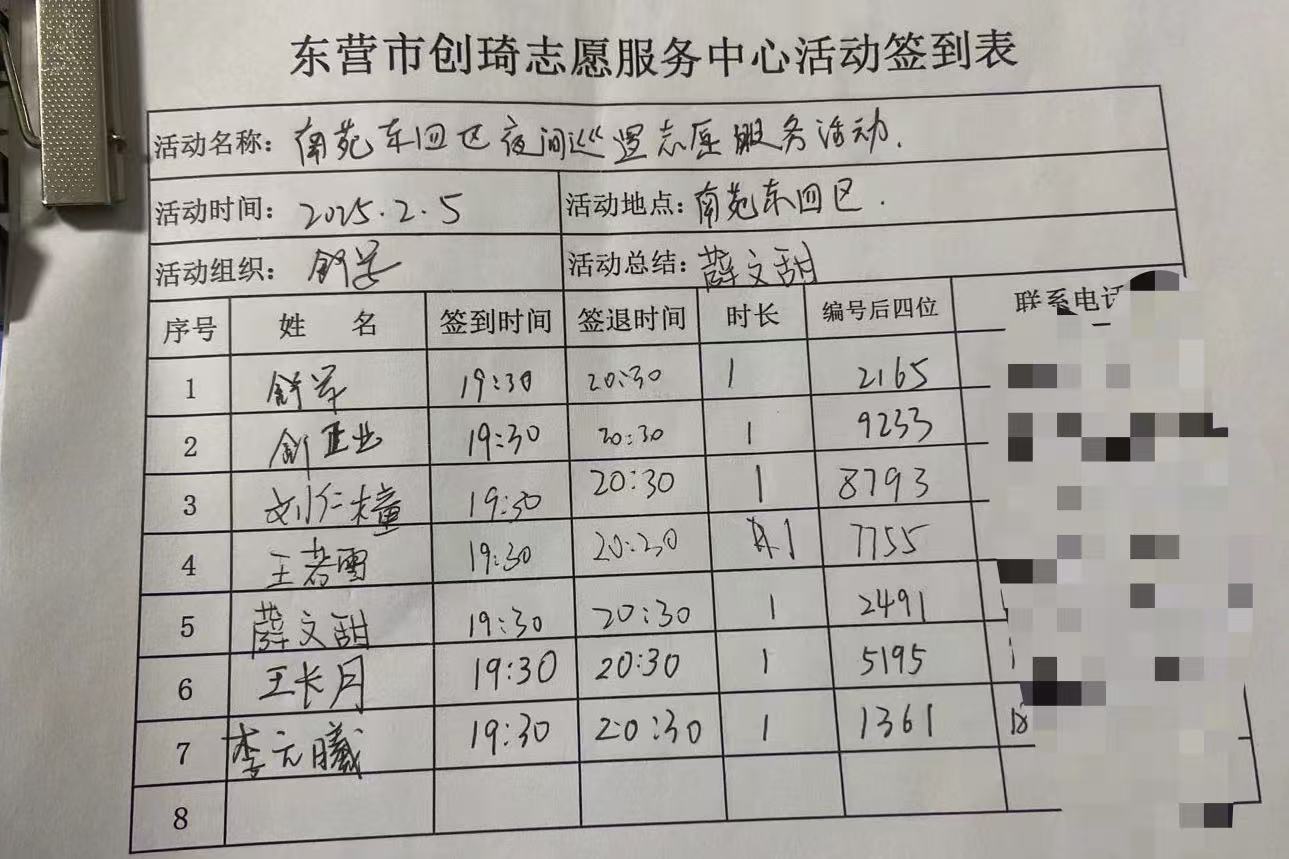 东营市创琦志愿服务中心活动签到表
活动名称: 南苑东四区夜间巡逻志愿服务活动.
活动时间: 2025.2.5 活动地点: 南苑东四区.
活动组织: 舒军 活动总结: 薛文甜
序号 姓 名 签到时间 签退时间 时长 编号后四位 联系电话
1 舒军 19:30 20:30 1 2165
2 舒正业 19:30 20:30 1 9233
3 刘仁橦 19:30 20:30 1 8793
4 王若雪 19:30 20:30 1 7755
5 薛文甜 19:30 20:30 1 2491
6 王长月 19:30 20:30 1 5195
7 李元曦 19:30 20:30 1 1361
8